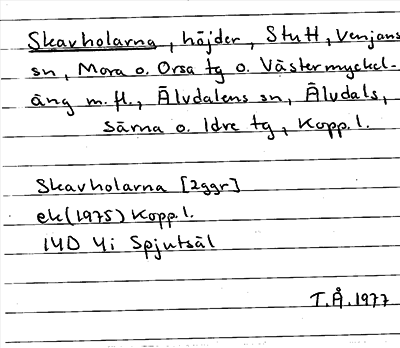 Skavholarna, höjder, Stutt, Venjans
sn, Mora o. Orsa tg o. Västermyckel-
äng m.fl., Älvdalens sn, Älvdals,
Särna o. Idre tg, Kopp.l.
Skavholarna [2ggr]
ek(1975) Kopp.l.
14D 4i Spjutsäl
T.Å.1977